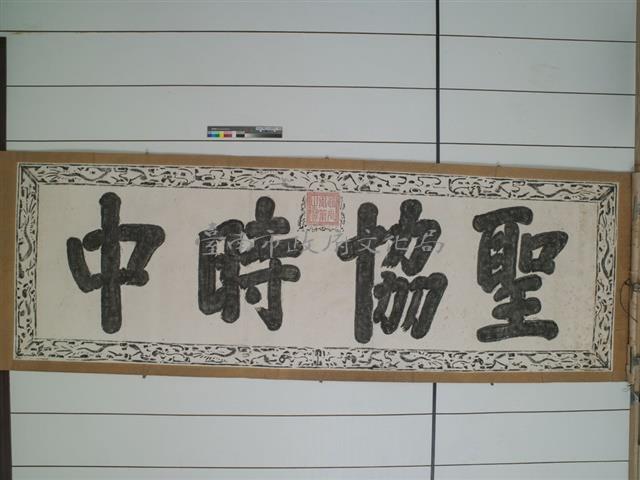 聖協時中
臺南市政府文化局